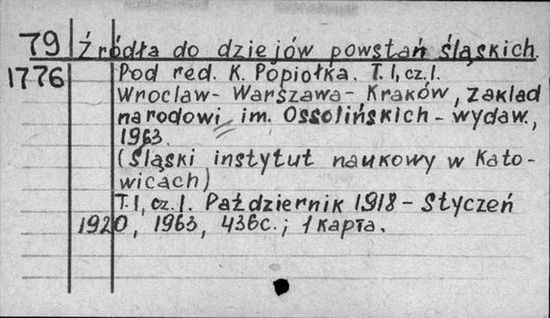 79 Źródła do dziejów powstań śląskich.
1776 Pod red. K. Popiołka. T. I, cz. I.
Wroclaw - Warszawa - Kraków, zakład
narodowi im. Ossolińskich - wydaw.,
1963.
(Śląski instytut naukowy w Kato-
wicach)
T. I, cz. I. Październik 1918 - Styczeń
1920, 1963, 436c.; 1 карта.